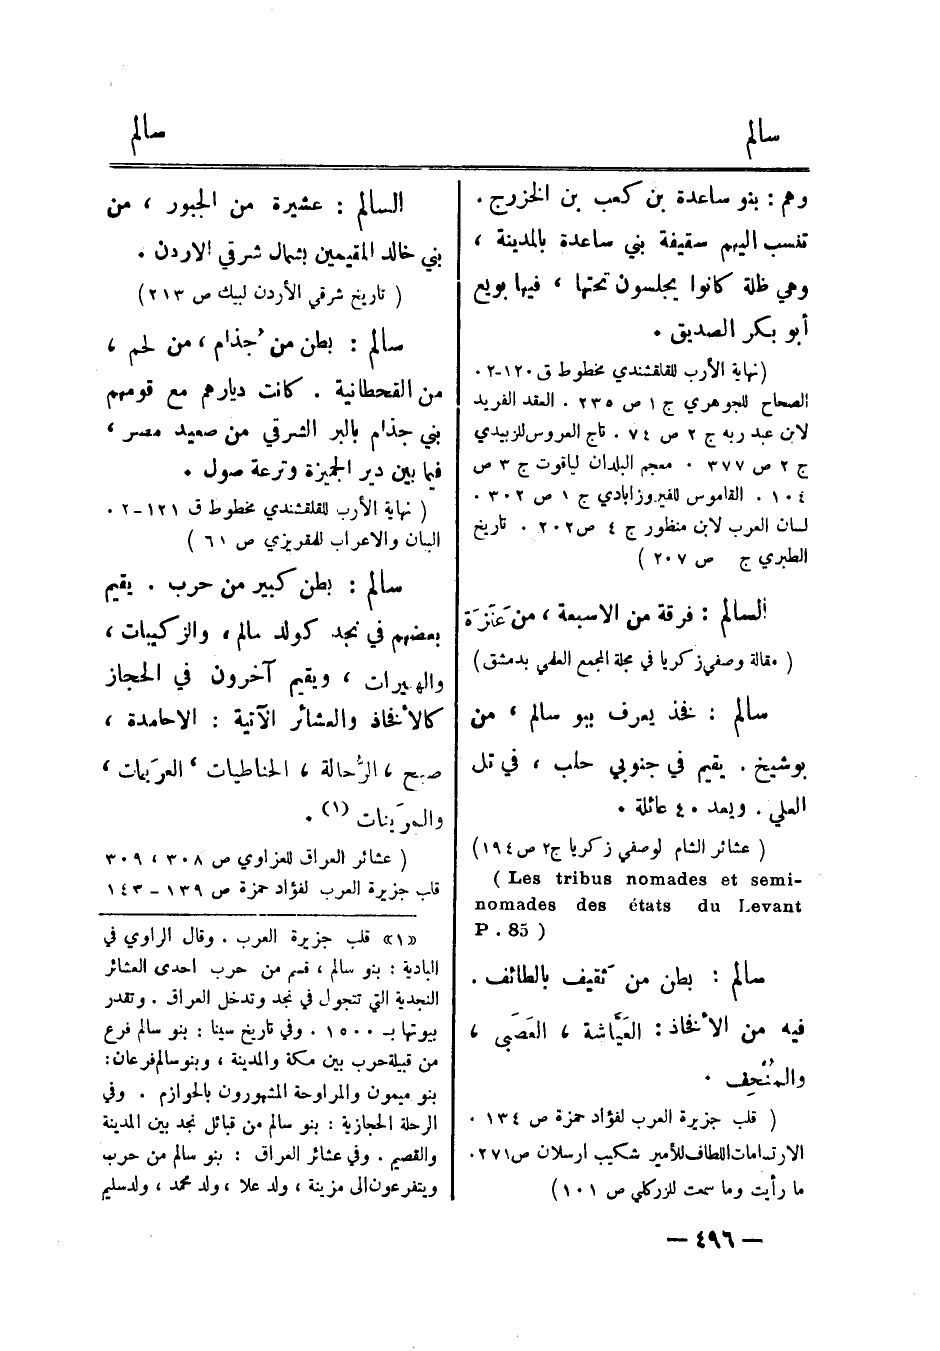 سالم
سالم
وهم : بنو ساعدة بن كعب بن الخزرج .
تنسب اليهم سقيفة بني ساعدة بالمدينة ،
وهي ظلة كانوا يجلسون تحتها ، فيها بويع
أبو بكر الصديق .
(نهاية الأرب للقلقشندي مخطوط ق ١٢٠-٢ .
الصحاح للجوهري ج ١ ص ٢٣٥ . العقد الفريد
لابن عبد ربه ج ٢ ص ٧٤ . تاج العروس للزبيدي
ج ٢ ص ٣٧٧ . معجم البلدان لياقوت ج ٣ ص
١٠٤ . القاموس للفيروزابادي ج ١ ص ٣٠٢ .
لسان العرب لابن منظور ج ٤ ص٢٠٢ . تاريخ
الطبري ج ص ٢٠٧ )
السالم : فرقة من الاسبعة ، من عَنَزَة
( مقالة وصفي زكريا في مجلة المجمع العلمي بدمشق)
سالم : فخذ يعرف ببو سالم ، من
بوشيخ . يقيم في جنوبي حلب ، في تل
العلي . ويعد ٤٠ عائلة .
( عشائر الشام لوصفي زكريا ج٢ ص١٩٤)
( Les tribus nomades et semi-
nomades des états du Levant
P . 85 )
سالم : بطن من ثَقيف بالطائف .
فيه من الأفخاذ : العَيَّاشة ، العَصَبي ،
والمُنْجِف .
( قلب جزيرة العرب لفؤاد حمزة ص ١٣٤ .
الارتسامات اللطاف للأمير شكيب ارسلان ص٢٧١.
ما رأيت وما سمعت للزركلي ص ١٠١)
السالم : عشيرة من الجبور ، من
بني خالد المقيمين بشمال شرقي الاردن .
( تاريخ شرقي الأردن لبيك ص ٢١٣)
سالم : بطن من جُذام ، من لخم ،
من القحطانية . كانت ديارهم مع قومهم
بني جذام بالبر الشرقي من صعيد مصر ،
فيما بين دير الجميزة وترعة صول .
( نهاية الأرب للقلقشندي مخطوط ق ١٢١-٢ .
البيان والاعراب للمقريزي ص ٦١ )
سالم : بطن كبير من حرب . يقيم
بعضهم في نجد كولد سالم ، والزكيبات ،
والهيرات ، ويقيم آخرون في الحجاز
كالأفخاذ والعشائر الآتية : الاحامدة ،
صبح ، الرُّحالة ، الحناطيات ، العرَيمات ،
(١) .
( عشائر العراق للعزاوي ص ٣٠٨ ، ٣٠٩
قلب جزيرة العرب لفؤاد حمزة ص ١٣٩ - ١٤٣
«١» قلب جزيرة العرب . وقال الراوي في
البادية : بنو سالم ، قسم من حرب احدى العشائر
النجدية التي تتجول في نجد وتدخل العراق . وتقدر
بيوتها بـ ١٥٠٠ . وفي تاريخ سينا : بنو سالم فرع
من قبيلة حرب بين مكة والمدينة ، وبنو سالم فرعان:
بنو ميمون والمراوحة المشهورون بالحوازم . وفي
الرحلة الحجازية : بنو سالم من قبائل نجد بين المدينة
والقصيم . وفي عشائر العراق : بنو سالم من حرب
ويتفرعون الى مزينة ، ولد علا ، ولد محمد ، ولد سليم
— ٤٩٦ —